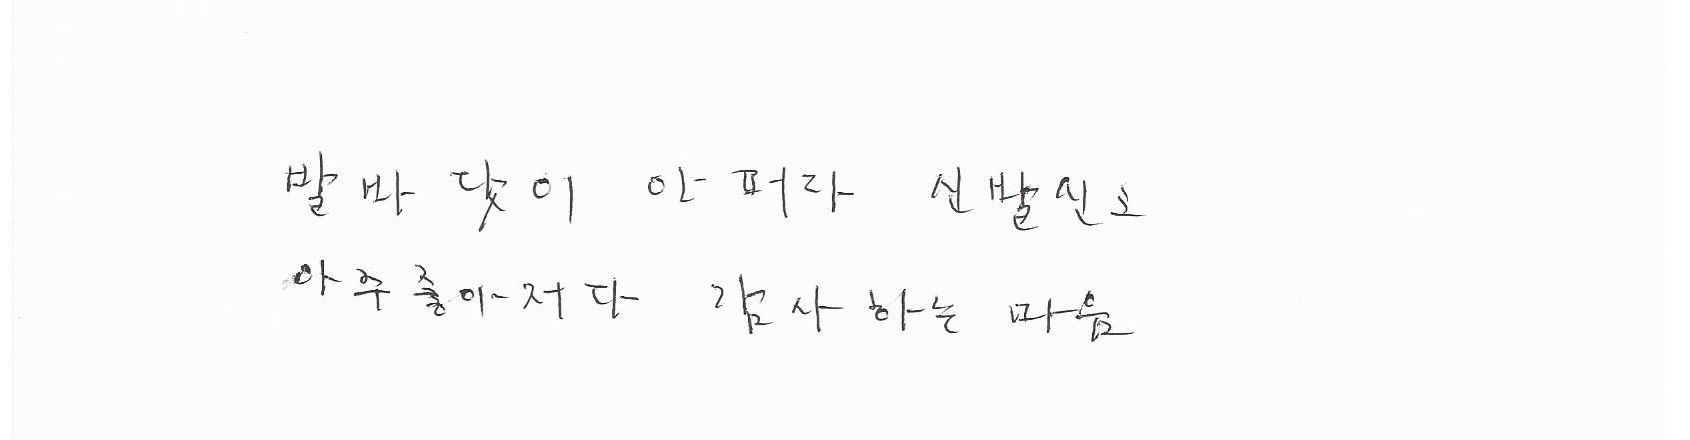 발바닷이 아퍼라 신발신고
아주졸아저다 감사하는 마음